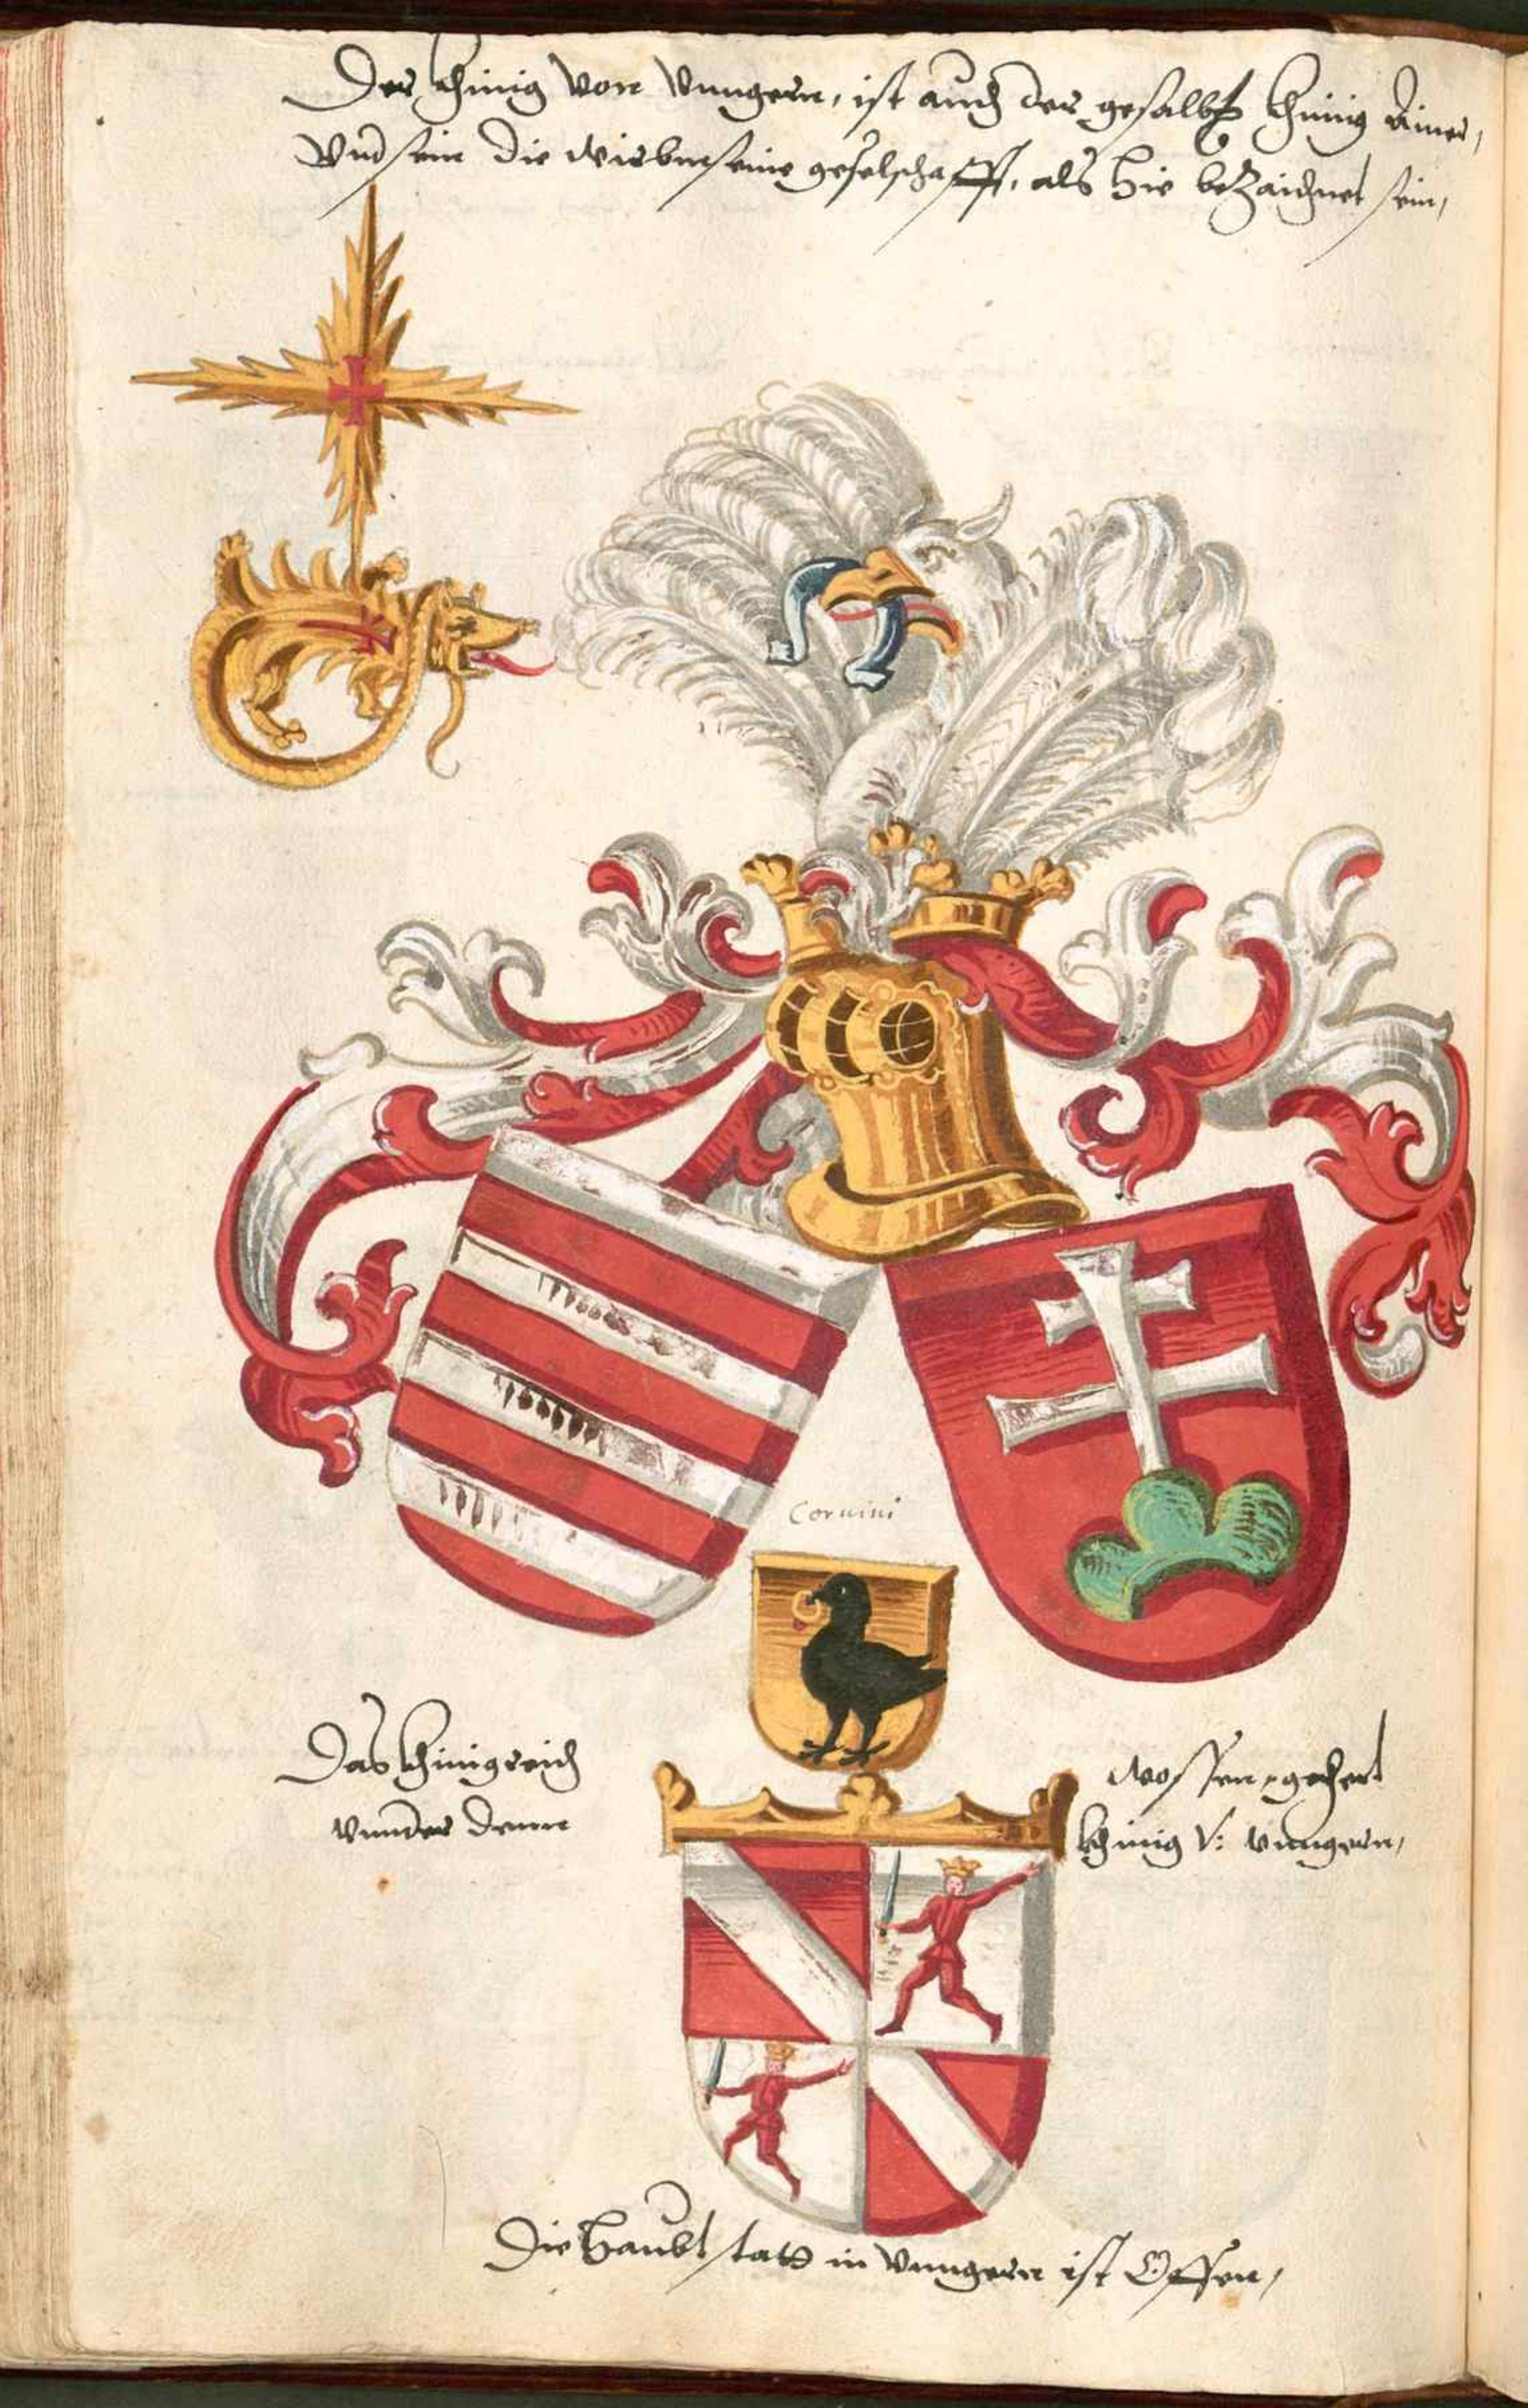 Der khinig von Vungern, ist auch der gesalbt khinig Ainer,
Vnd sein die wierbm seine geselschafft, als hie bezaichnet sein,
Coruini
Das khinigreich
vunder denn
wossen gehert
khinig v: vungern,
Die haubt statt in Vungern ist Offen,